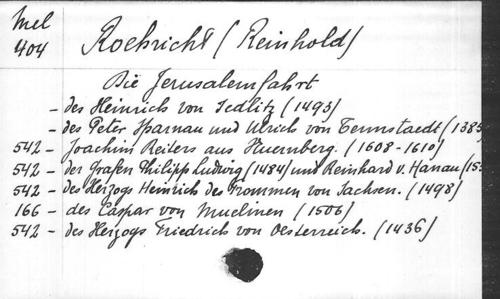 Mel
404
Roehricht (Reinhold)
Die Jerusalemfahrt
- des Heinrich von Zedlitz (1493)
- des Peter Sparnau und Ulrich von Tennstaedt (1385
542 - Joachim Reiters aus Nuernberg. (1608-1610)
542 - der Grafen Philipp Ludwig (1484) und Reinhard v. Hanau (15
542 - des Herzogs Heinrich des Frommen von Sachsen. (1498)
166 - des Caspar von Muelinen (1506)
542 - des Herzogs Friedrich von Oesterreich. (1436)